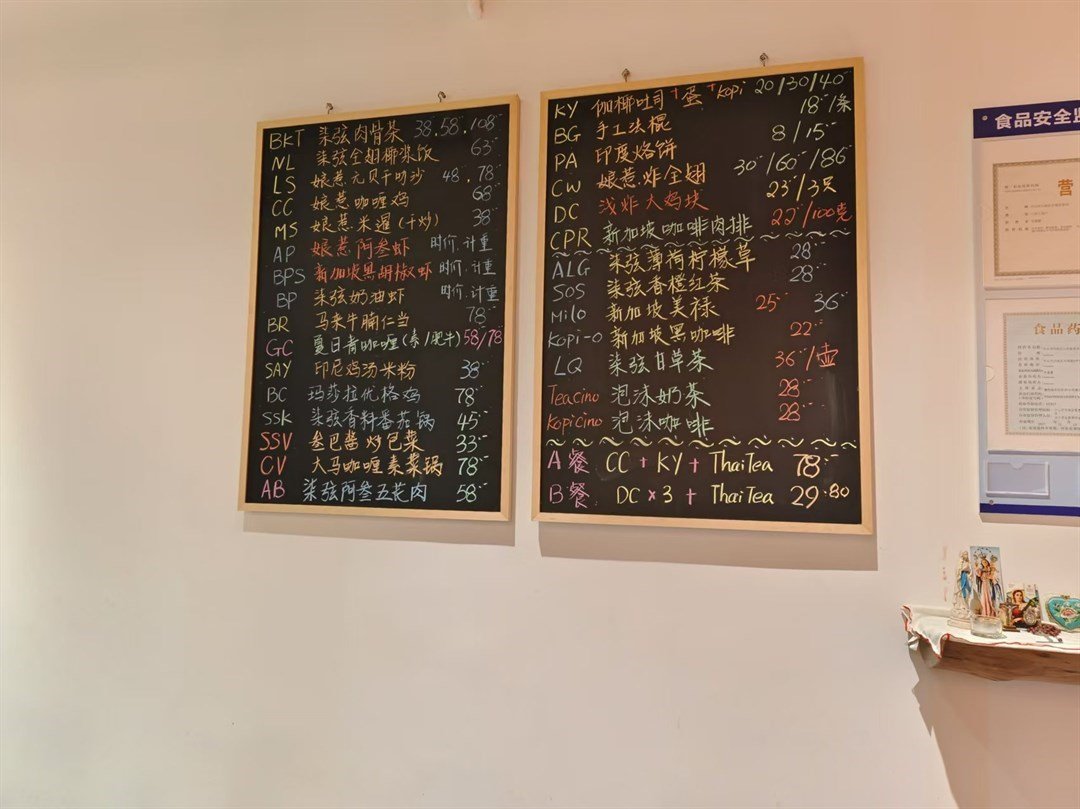 BKT 柒弦肉骨茶 38.58.108
NL 柒弦全翅椰浆饭 63
LS 娘惹元贝干叻沙 48.78
CC 娘惹咖喱鸡 68
MS 娘惹米暹(干炒) 38
AP 娘惹阿叁虾 时价.计重
BPS 新加坡黑胡椒虾 时价.计重
BP 柒弦奶油虾 时价.计重
BR 马来牛腩仁当 78
GC 夏日青咖喱(素/肥牛) 58/78
SAY 印尼鸡汤米粉 38
BC 玛莎拉优格鸡 78
SSK 柒弦香料番茄锅 45
SSV 叁巴酱炒包菜 33
CV 大马咖喱素菜锅 78
AB 柒弦阿叁五花肉 58
KY 咖椰吐司+蛋+kopi 20/30/40
BG 手工法棍 18/条
PA 印度烙饼 8/15
CW 娘惹炸全翅 30/60/86
DC 浅炸大鸡块 23/3只
CPR 新加坡咖啡肉排 22/100克
ALG 柒弦薄荷柠檬草 28
SOS 柒弦香橙红茶 28
Milo 新加坡美禄 25 36
Kopi-o 新加坡黑咖啡 22
LQ 柒弦甘草茶 36/壶
Teacino 泡沫奶茶 28
Kopicino 泡沫咖啡 28
A餐 CC + KY + ThaiTea 78
B餐 DC×3 + ThaiTea 29.80
食品安全
营
食品药